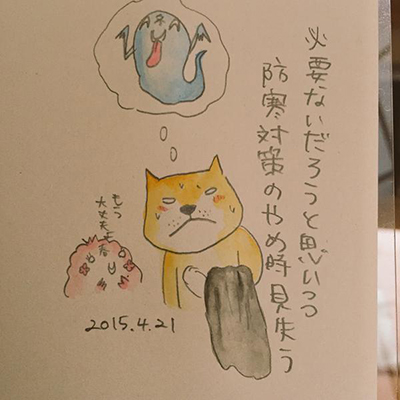 必要ないだろうと思いつつ
防寒対策のやめ時見失う
もう
大丈夫だな
2015.4.21